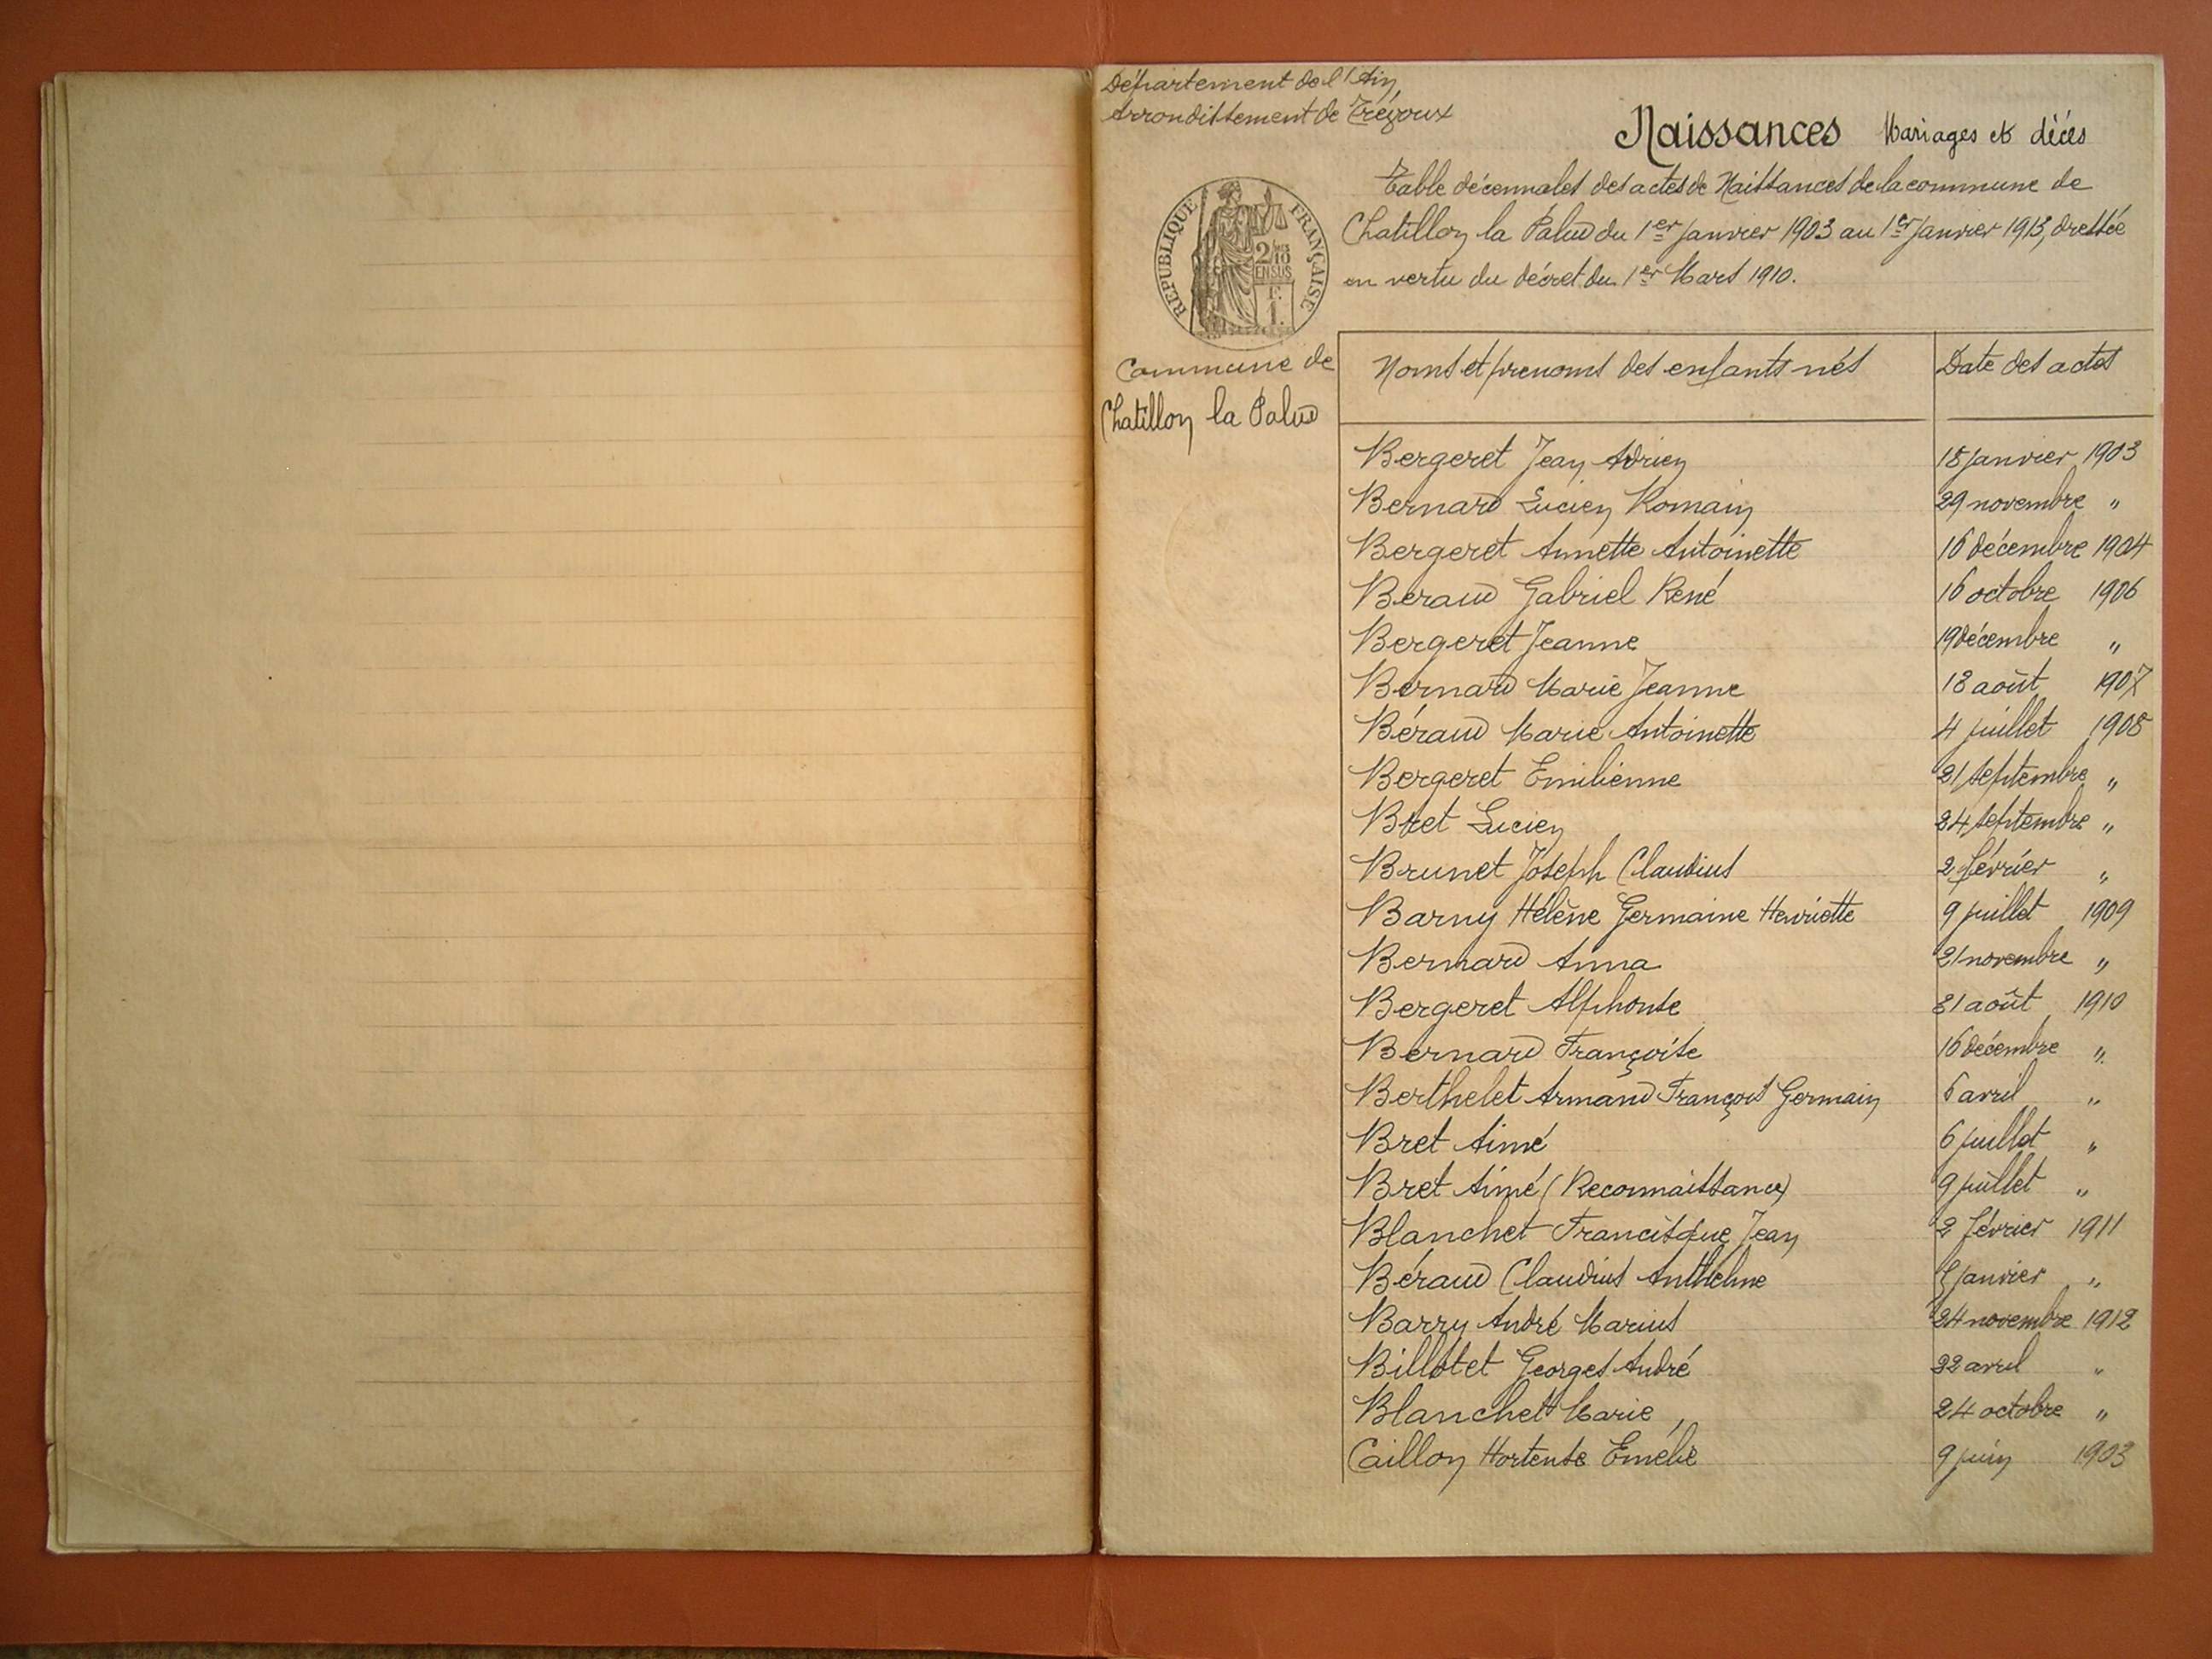 Département de l'Ain
Arrondissement de Trévoux
Naissances Mariages et décès
Table décennales des actes de Naissances de la commune de
Chatillon la Palud du 1er Janvier 1903 au 1er Janvier 1913, dressée
en vertu du décret du 1er Mars 1910.
REPUBLIQUE FRANÇAISE
2/10
EN SUS
F.
1.
Commune de
Chatillon la Palud
Noms et prenoms des enfants nés Date des actes
Bergeret Jean Adrien 18 janvier 1903
Bernard Lucien Romain 29 novembre "
Bergeret Annette Antoinette 16 décembre 1904
Beraud Gabriel René 16 octobre 1906
Bergeret Jeanne 19 décembre "
Bernard Marie Jeanne 18 août 1907
Béraud Marie Antoinette 4 juillet 1908
Bergeret Emilienne 21 septembre "
Bret Lucien 24 septembre "
Brunet Joseph Claudius 2 février "
Barny Hélène Germaine Henriette 9 juillet 1909
Bernard Anna 21 novembre "
Bergeret Alphonse 31 août 1910
Bernard Françoise 16 décembre "
Berthelet Armand François Germain 6 avril "
Bret Aimé 6 juillet "
Bret Aimé (Reconnaissance) 9 juillet "
Blanchet Francisque Jean 2 février 1911
Béraud Claudius Anthelme janvier "
Barry André Marius 24 novembre 1912
Billotet Georges André 22 avril "
Blanchet Marie 24 octobre "
Caillon Hortense Emélie 9 juin 1903